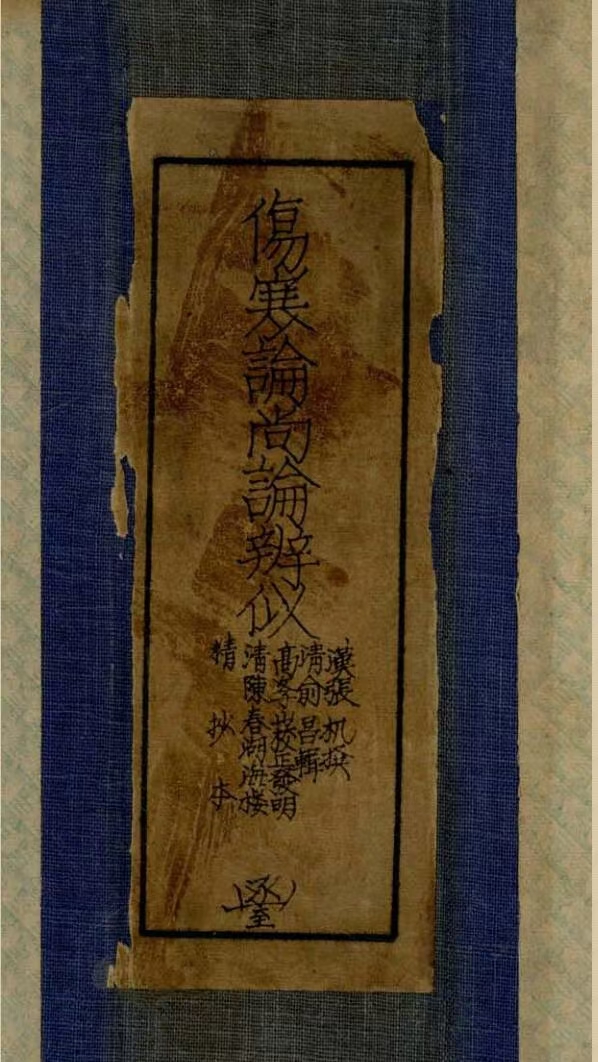 傷寒論尚論辨似
漢張机撰
清俞昌輯
高学山校正發明
清陳春湖海楼
精抄本